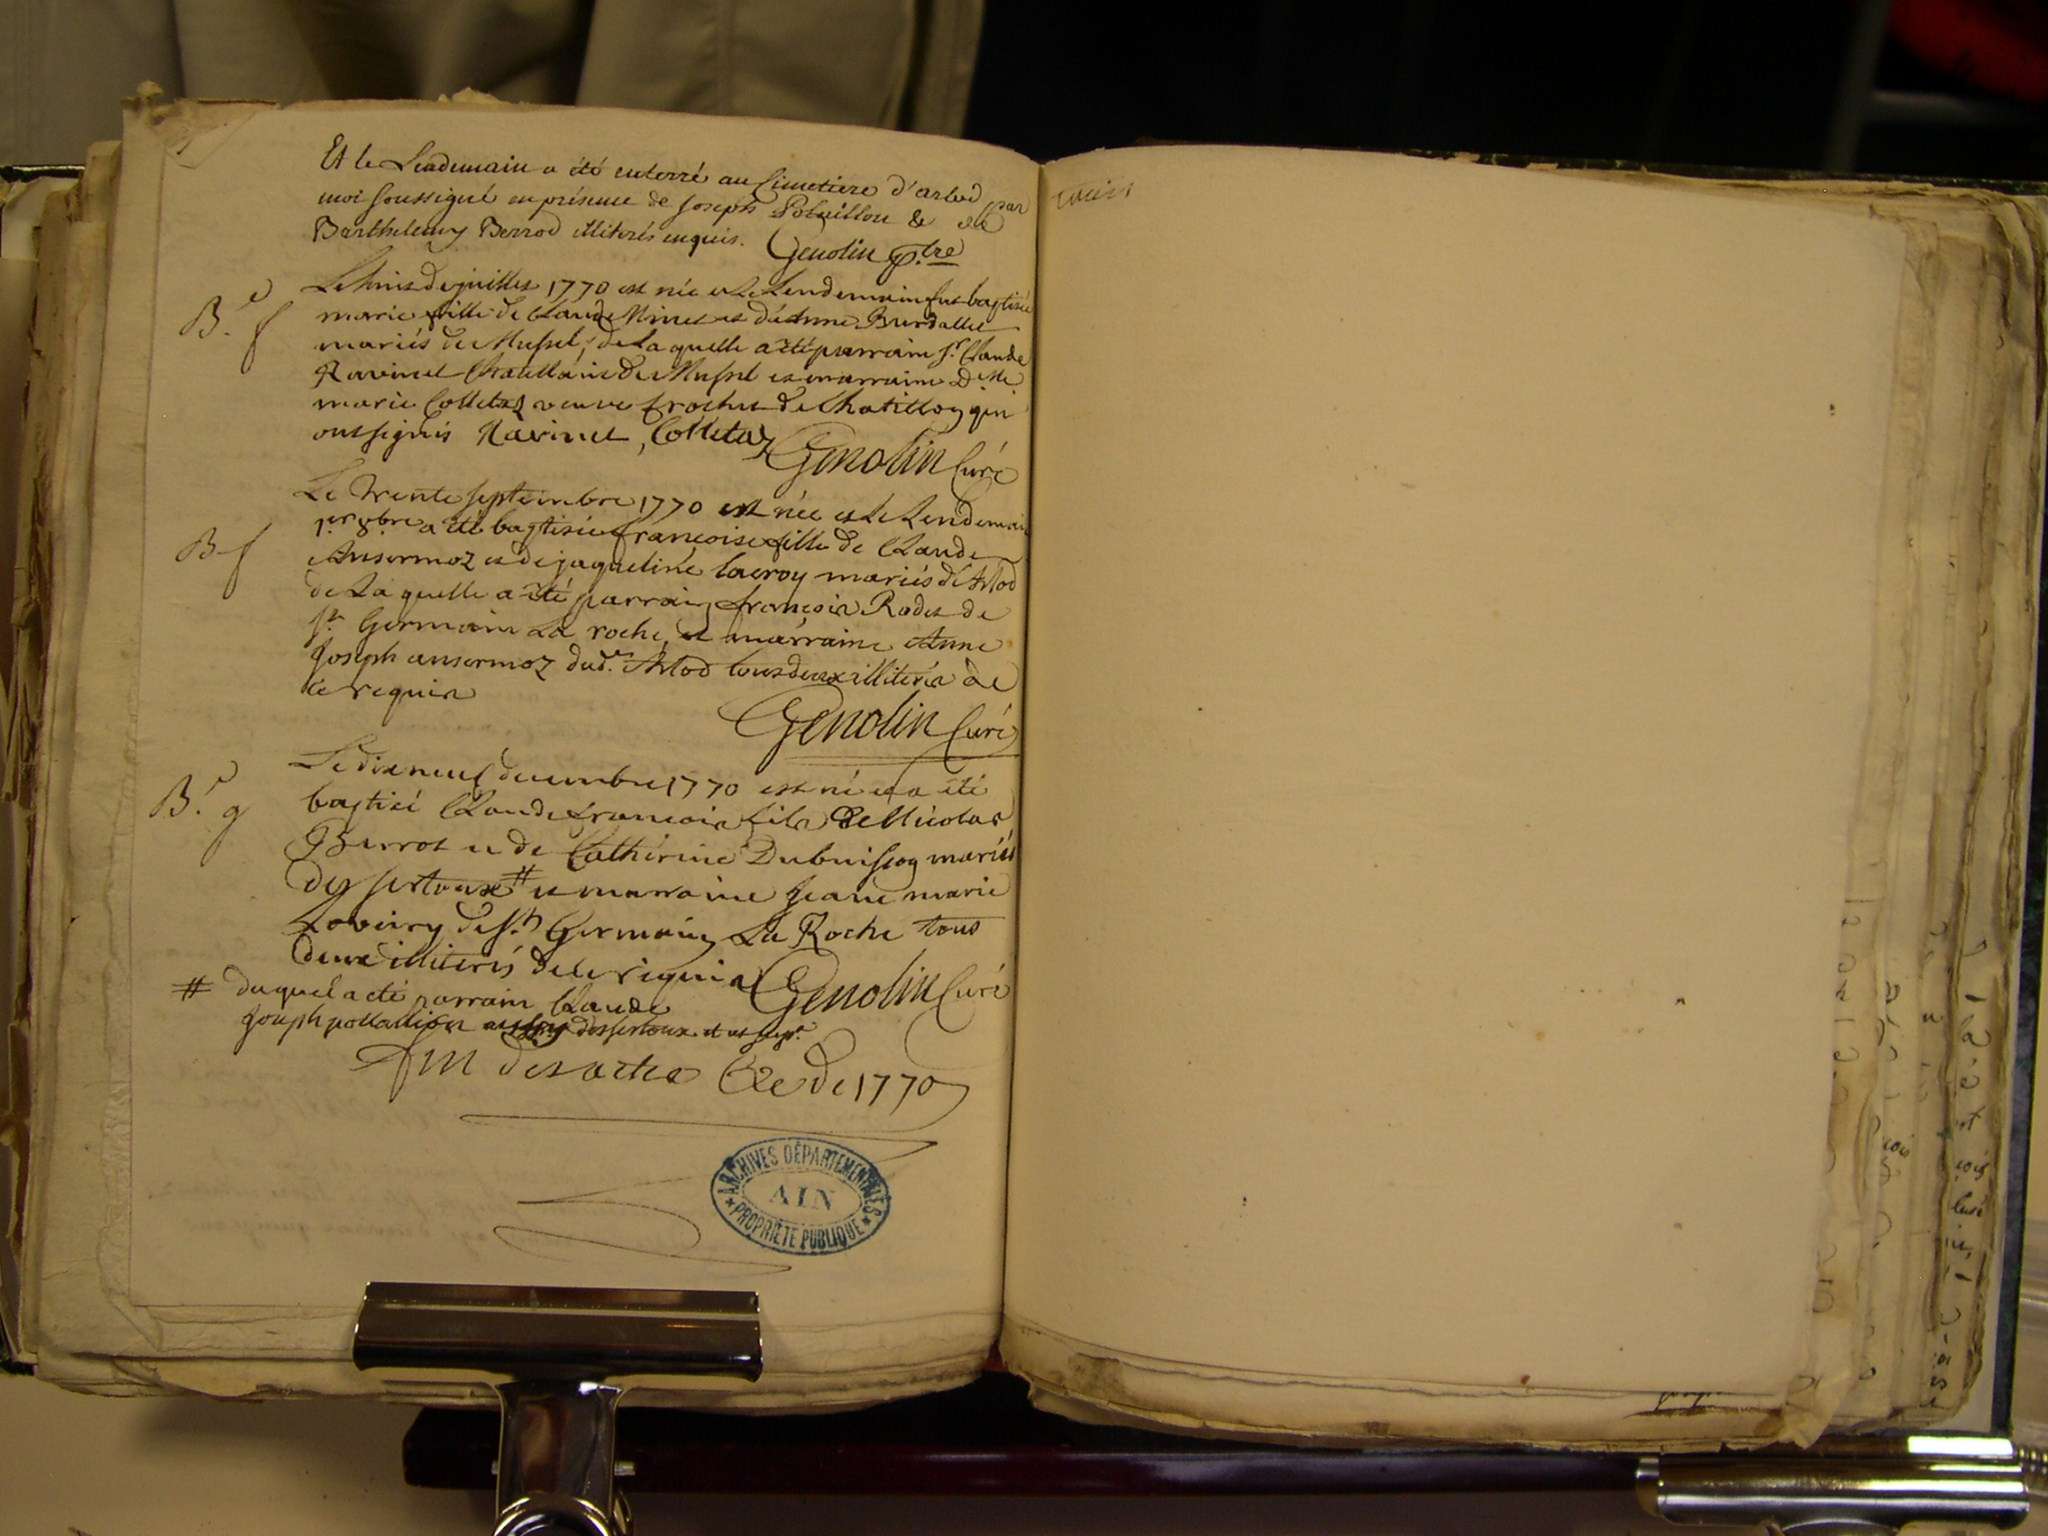 Et le Lendemain a été enterré au Cimetiere d'arlod par
moi soussigné en présence de joseph Poluillou &
Barthelemy Berrod illiterés enquis. Genolin p.tre
juillet 1770 est née et le Lendemain fut baptisée
B. f
marie fille de Claude Ninet et d'Anne Burdallet
mariés de Mussel, de la quelle a été parrain Sr. Claude
Ravinet Chatelain de Mussel et marraine Delle
marie Colletaz veuve trochet de Chatillon qui
ont signés Ravinet, Colletaz
Genolin Curé
Le trente septembre 1770 est née et le Lendemain
1er 8bre a été baptisée françoise fille de Claude
B f
Ansermoz et de jaqueline lacroy mariés d'Arlod
de la quelle a été parrain françois Rodet de
st. Germain La roche et marraine Anne
Joseph ansermoz dud. Arlod tous deux illiterés de
ce requis
Genolin Curé
Le dix neuf decembre 1770 est né et a été
B. g
baptisé Claude francois fils de Nicolas
Berrot et de Catherine Dubuisson mariés
des sertoux # et marraine Jeane marie
Loveiry de st. Germain La Roche tous
deux illiterés de ce requis Genolin Curé
# duquel a été parrain Claude
joseph des sertoux et
fin des actes de 1770
ARCHIVES DÉPARTEMENTALES
AIN
PROPRIÉTÉ PUBLIQUE